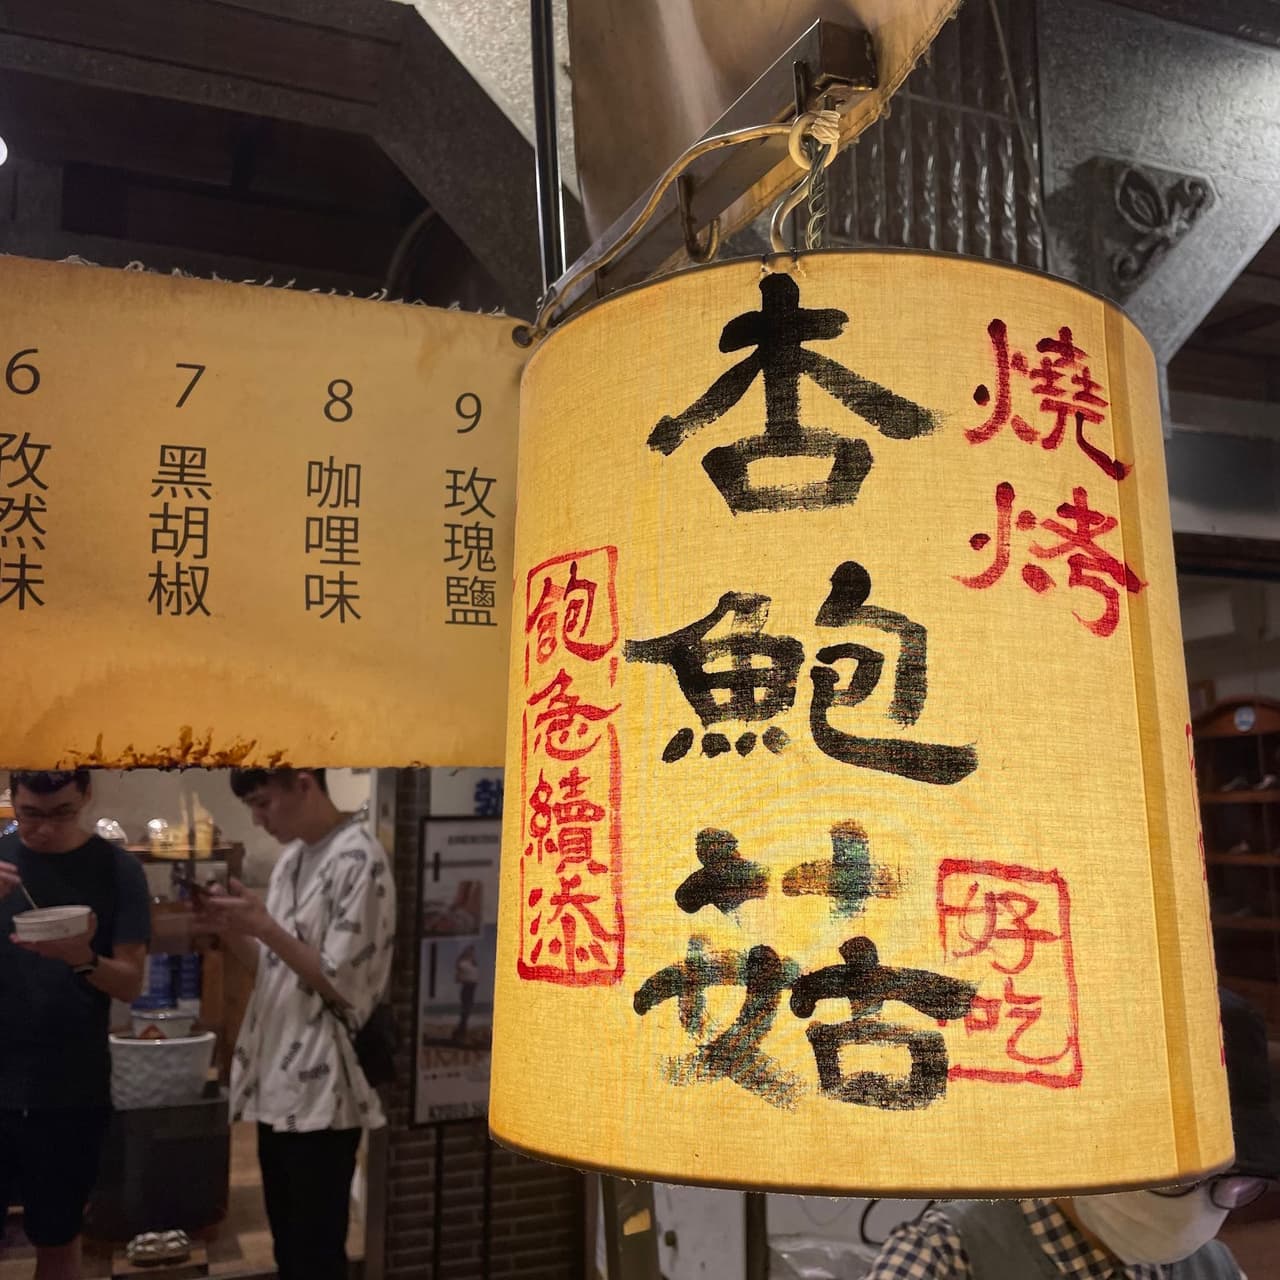 6 孜然味
7 黑胡椒
8 咖哩味
9 玫瑰鹽
燒烤
杏鮑菇
飽急續添
好吃